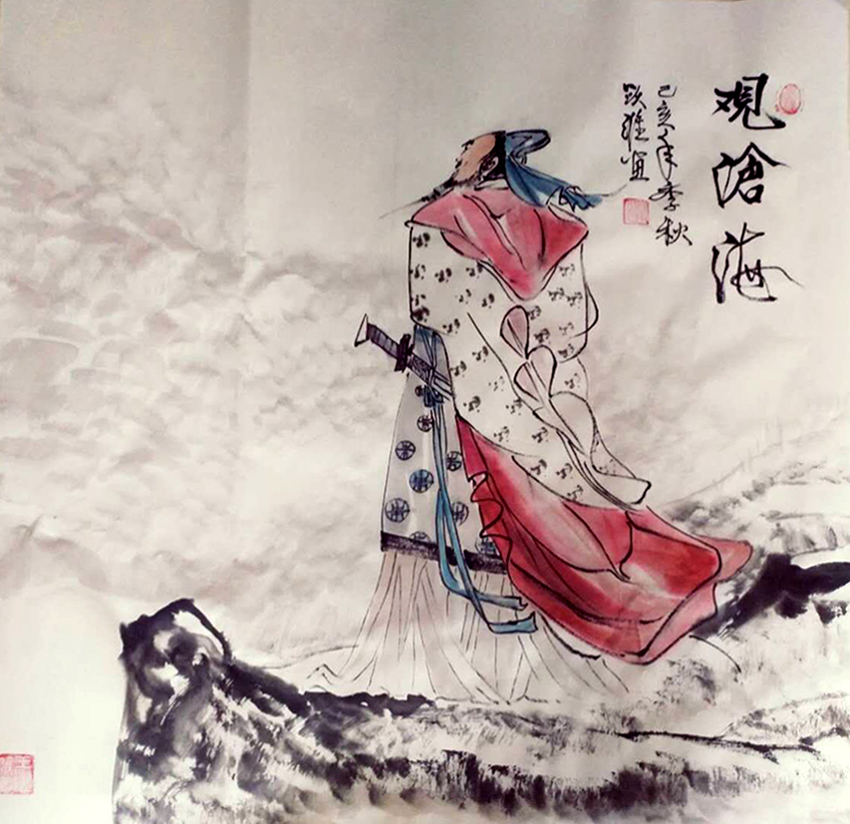 观沧海
己亥年季秋
跃雄画